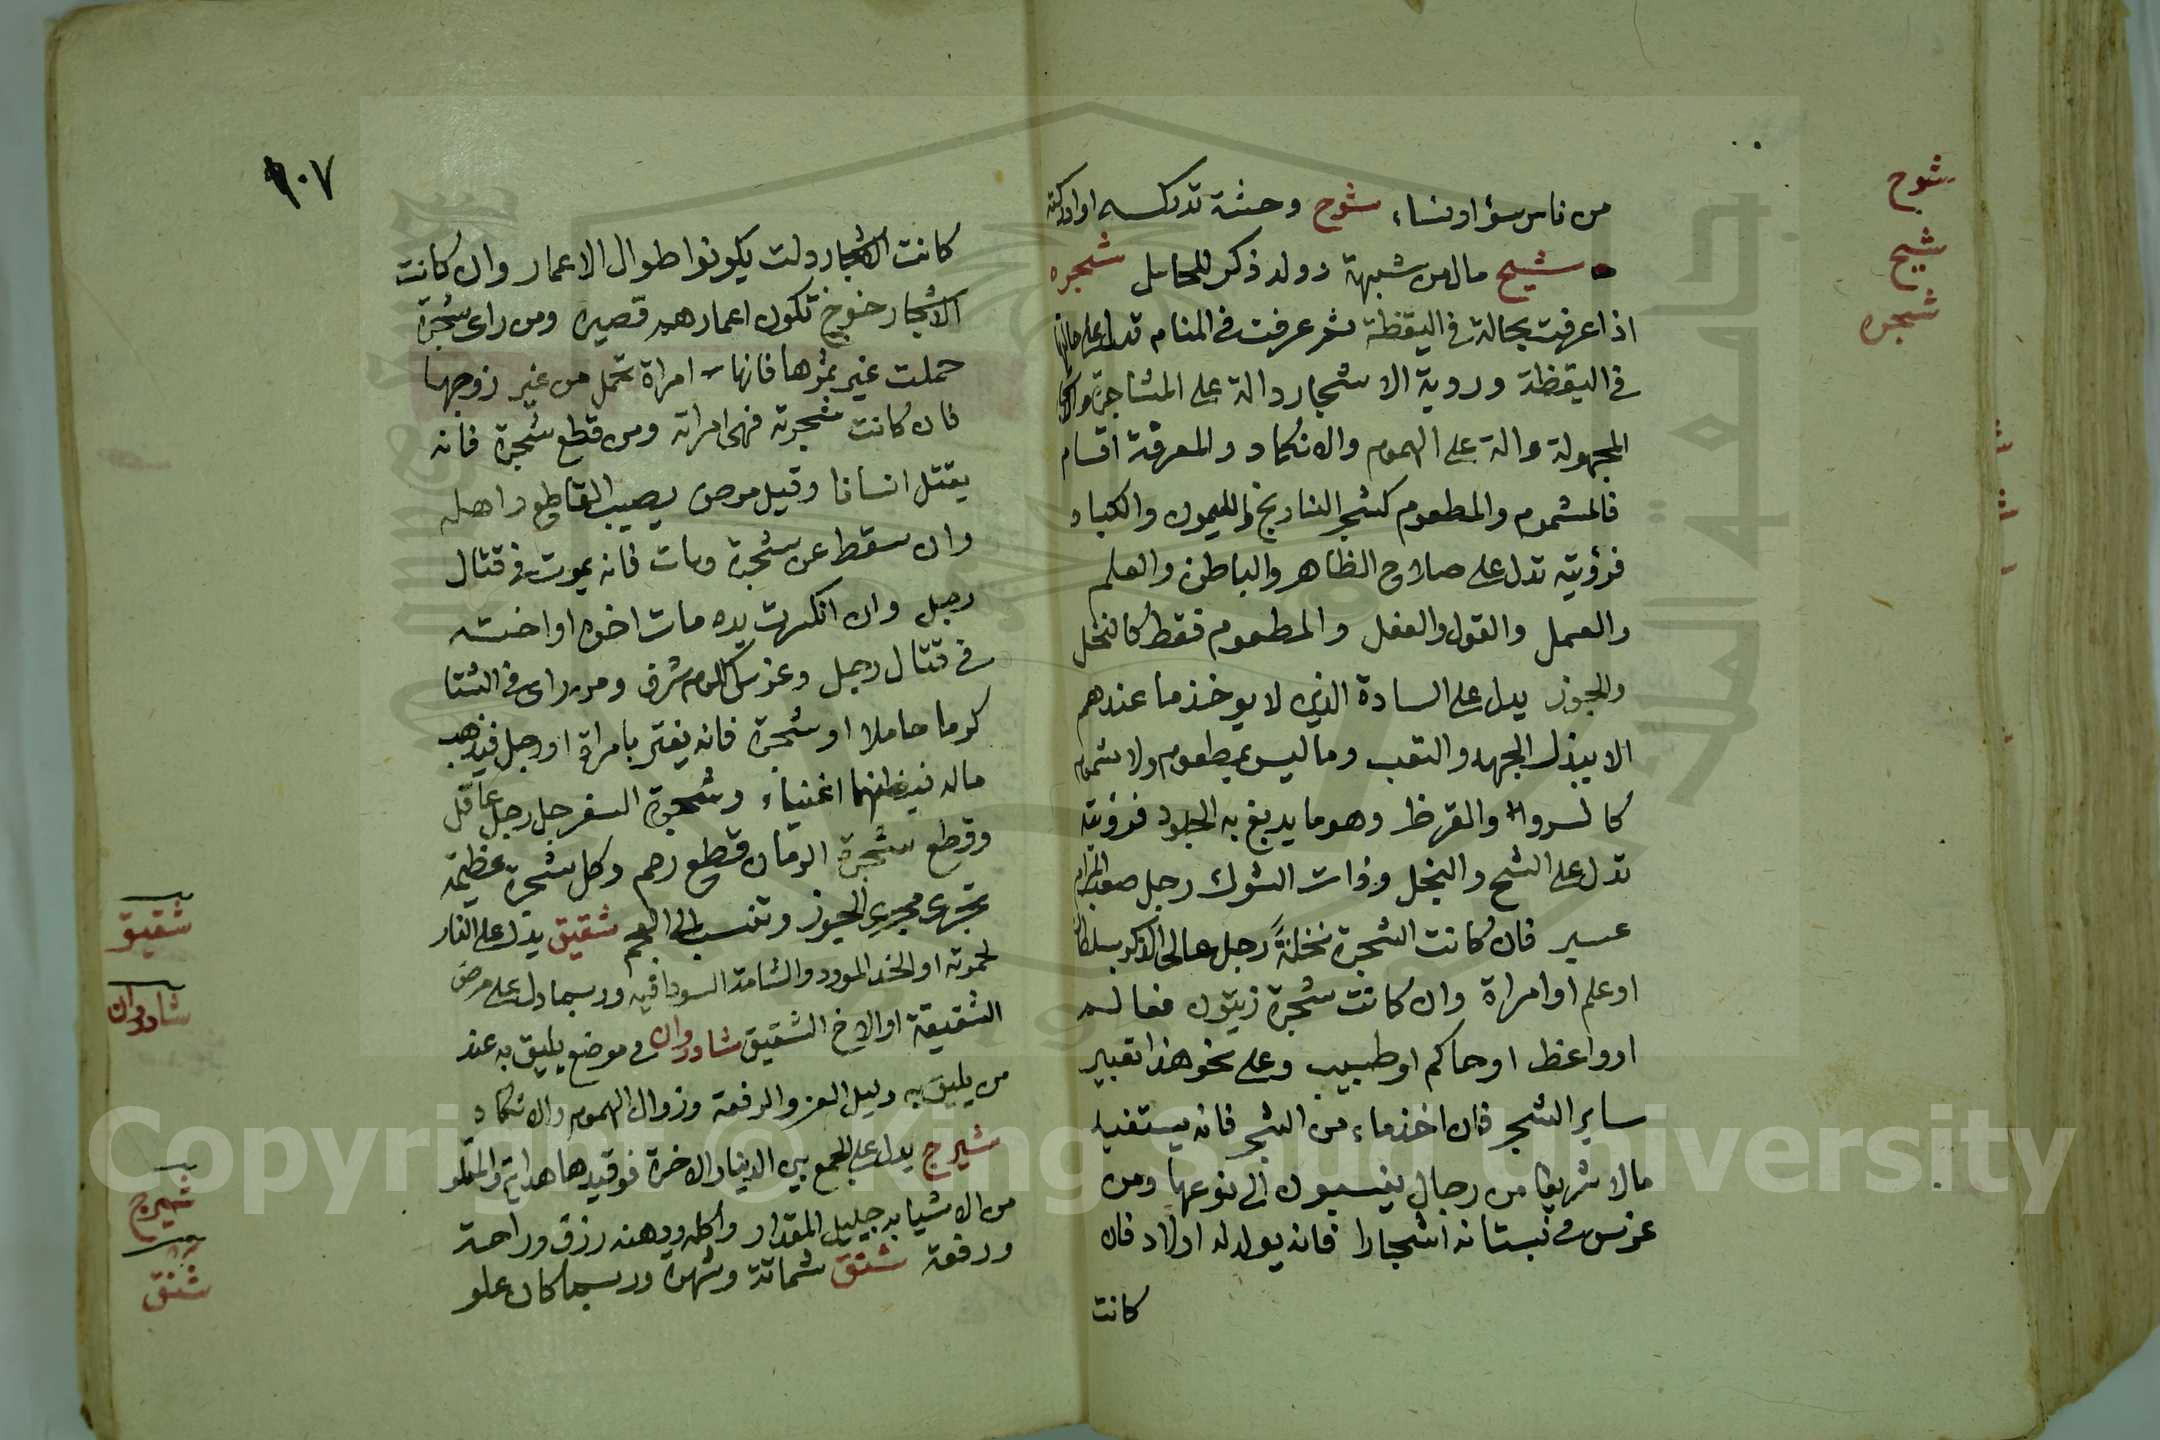 شوح
شيح
شجره
من ناس سؤ او نساء شوح وحشة تدركه او اد
شيح مال من شبهة وولد ذكر للحامل شجره
اذا عرفت بحالة في اليقظة ثم عرفت في المنام تدل على حالتها
في اليقظة وروية الاشجار دالة على المشاجرة
المجهولة دالة على الهموم والانكاد والمعرفة اقسام
فالمشموم والمطعوم كشجر النارنج والليمون والكباد
فرؤيته تدل على صلاح الظاهر والباطن والعلم
والعمل والقول والفعل والمطعوم فقط كالنخل
والجوز يدل على السادة الذين لا يوخذ ما عندهم
الا ببذل الجهد والتعب وما ليس بمطعوم ولا مشموم
كالسرو والقرظ وهو ما يدبغ به الجلود فرؤيته
تدل على الشح والبخل وذات الشوك رجل صعب المرام
عسير فان كانت الشجرة نخلةً رجل عالي الذكر بسلطان
او علم او امراة وان كانت شجرة زيتون فعالم
او واعظ او حاكم او طبيب وعلى نحو هذا تعبير
ساير الشجر فان اخذ ماء من الشجر فانه يستفيد
مالا شريفا من رجال ينسبون الى نوعها ومن
غرس في بستانه اشجارا فانه يولد له اولاد فان
كانت
١٠٧
كانت الاشجار دلت يكونوا طوال الاعمار وان كانت
الاشجار خوخ تكون اعمارهم قصيرة ومن راى شجرة
حملت غير ثمرها فانها امراة تحمل من غير زوجها
فان كانت شجرته فهي امراته ومن قطع شجرة فانه
يقتل انسانا وقيل مرض يصيب القاطع او اهله
وان سقط عن شجرة ومات فانه يموت في قتال
رجل وان انكسرت يده مات اخوه او اخته
في قتال رجل وغرس الكرم شرف ومن راى في الشتا
كرما حاملا او شجرة فانه يغتر بامراة او رجل فيذهب
ماله فيظنهما اغنياء وشجرة السفرجل رجل عاقل
وقطع شجرة الرمان قطع رحم وكل شجرة عظيمة
تجري مجرى الجوز وتنسب الى العجم شقيق يدل على النار
لحمرته او الخد المورد والشامة السودا فيه وربما دل على مرض
الشقيقة او الاخ الشقيق شادروان في موضع يليق به عند
من يليق به دليل العز والرفعة وزوال الهموم والانكاد
شيرج يدل على الجمع بين الدنيا والاخرة فوقيدها هداية والمقلو
من الاشيا به جليل المقدار واكله ودهنه رزق وراحة
ورفعة شنق شماتة وشهرة وربما كان علو
شقيق
شادروان
شيرج
شنق
Copyright © King Saud University